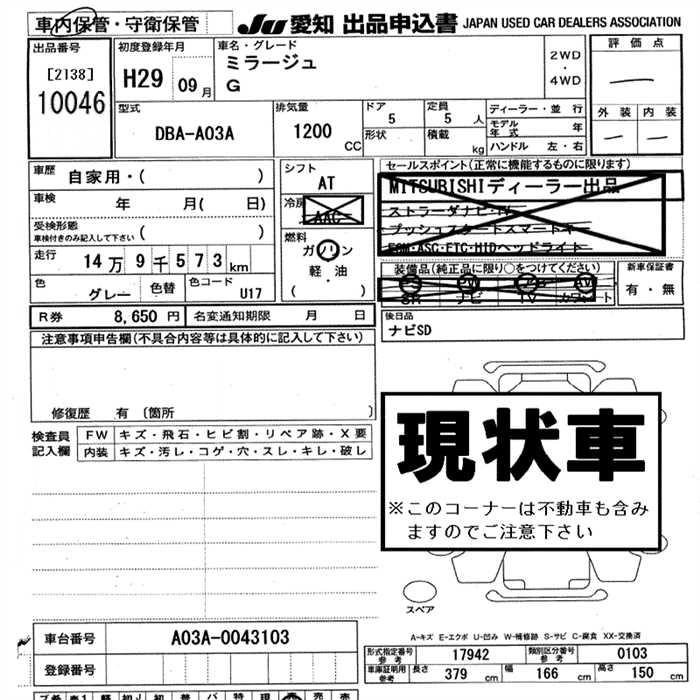 車内保管・守衛保管
JU 愛知 出品申込書 JAPAN USED CAR DEALERS ASSOCIATION
出品番号
[2138]
10046
初度登録年月
H29 09月
車名・グレード
ミラージュ
G
2WD
・
4WD
評価点
外装 内装
型式
DBA-A03A
排気量
1200 CC
ドア
5
形状
定員
5 人
積載 kg
ディーラー・並行
モデル年式 年
ハンドル 左・右
車歴 自家用・( )
車検 年 月( 日)
受検形態
車検付きのみ記入して下さい ( )
走行 14万9千573km
色 グレー 色替 色コード U17
シフト
AT
冷房
AAC
燃料
ガソリン
軽・油
( )
セールスポイント(正常に機能するものに限ります)
MITSUBISHIディーラー出品
ストラーダナビ・TV
プッシュスタートスマートキー
ESM・ASC・FTC・HIDヘッドライト
装備品(純正品に限り○をつけてください)
PS PW AB AW
SR ナビ TV カワシート
新車保証書
有・無
R券 8,650円 名変通知期限 月 日
後日品
ナビSD
注意事項申告欄(不具合内容等は具体的に記入して下さい)
修復歴 有 〔箇所 〕
検査員記入欄
FW キズ・飛石・ヒビ割・リペア跡・X要
内装 キズ・汚レ・コゲ・穴・スレ・キレ・破レ
現状車
※このコーナーは不動車も含み
ますのでご注意下さい
スペア
A-キズ E-エクボ U-凹み W-補修跡 S-サビ C-腐食 XX-交換済
車台番号 A03A-0043103
登録番号
形式指定番号 参考 17942 類別区分番号 参考 0103
車庫証明用 参考 長さ 379 cm 幅 166 cm 高さ 150 cm